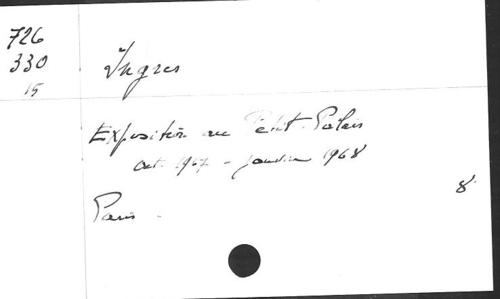 726
330
15
Ingres
Exposition au Petit-Palais
oct. 1967 - janvier 1968
8°
Paris.